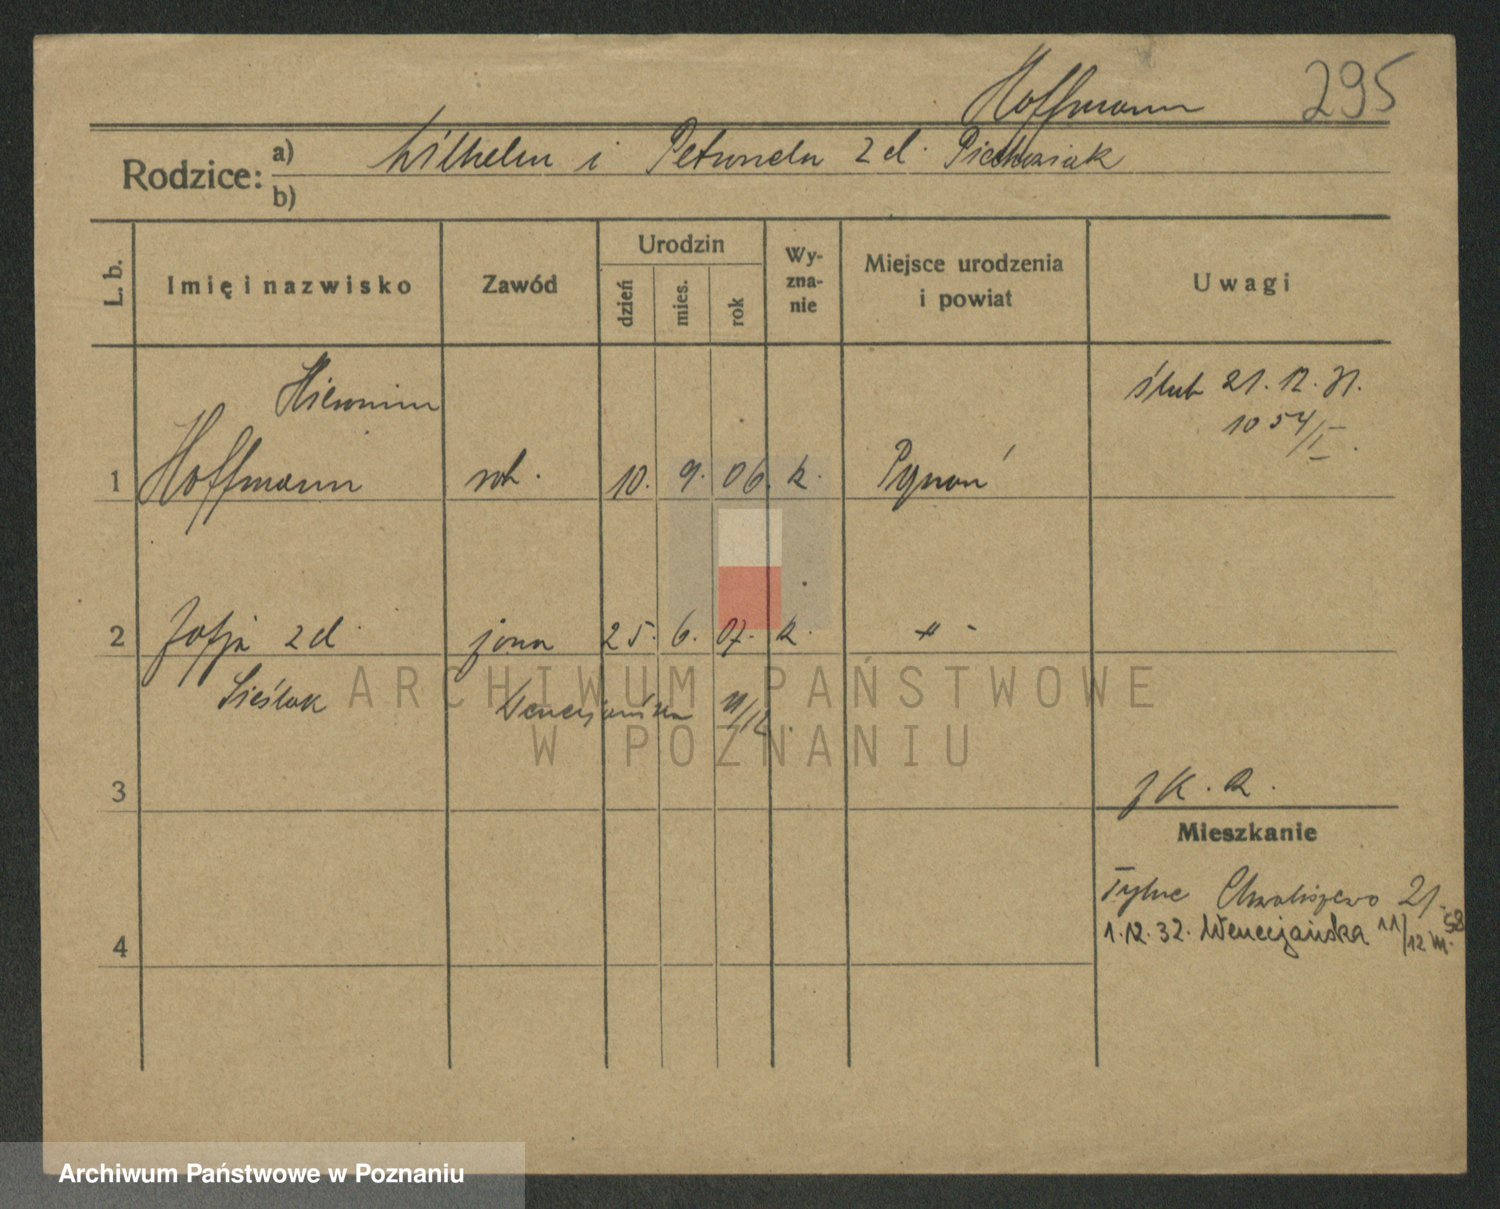 Hoffmann 295
Rodzice: a) Wilhelm i Petronela z d. Piechowiak
b)
L. b. Imię i nazwisko Zawód Urodzin dzień mies. rok Wyznanie Miejsce urodzenia i powiat Uwagi
Hieronim
ślub 21. 12. 31.
1054/I.
1 Hoffmann rob. 10. 9. 06. k. Poznań
2 Zofja z d. żona 25. 6. 07. k. -"-
Cieślak Wenecjańska 11/12
3
Mieszkanie
Tylne Chwaliszewo 21
1.12.32. Wenecjańska 11/12 m. 58
4
ARCHIWUM PAŃSTWOWE
W POZNANIU
Archiwum Państwowe w Poznaniu